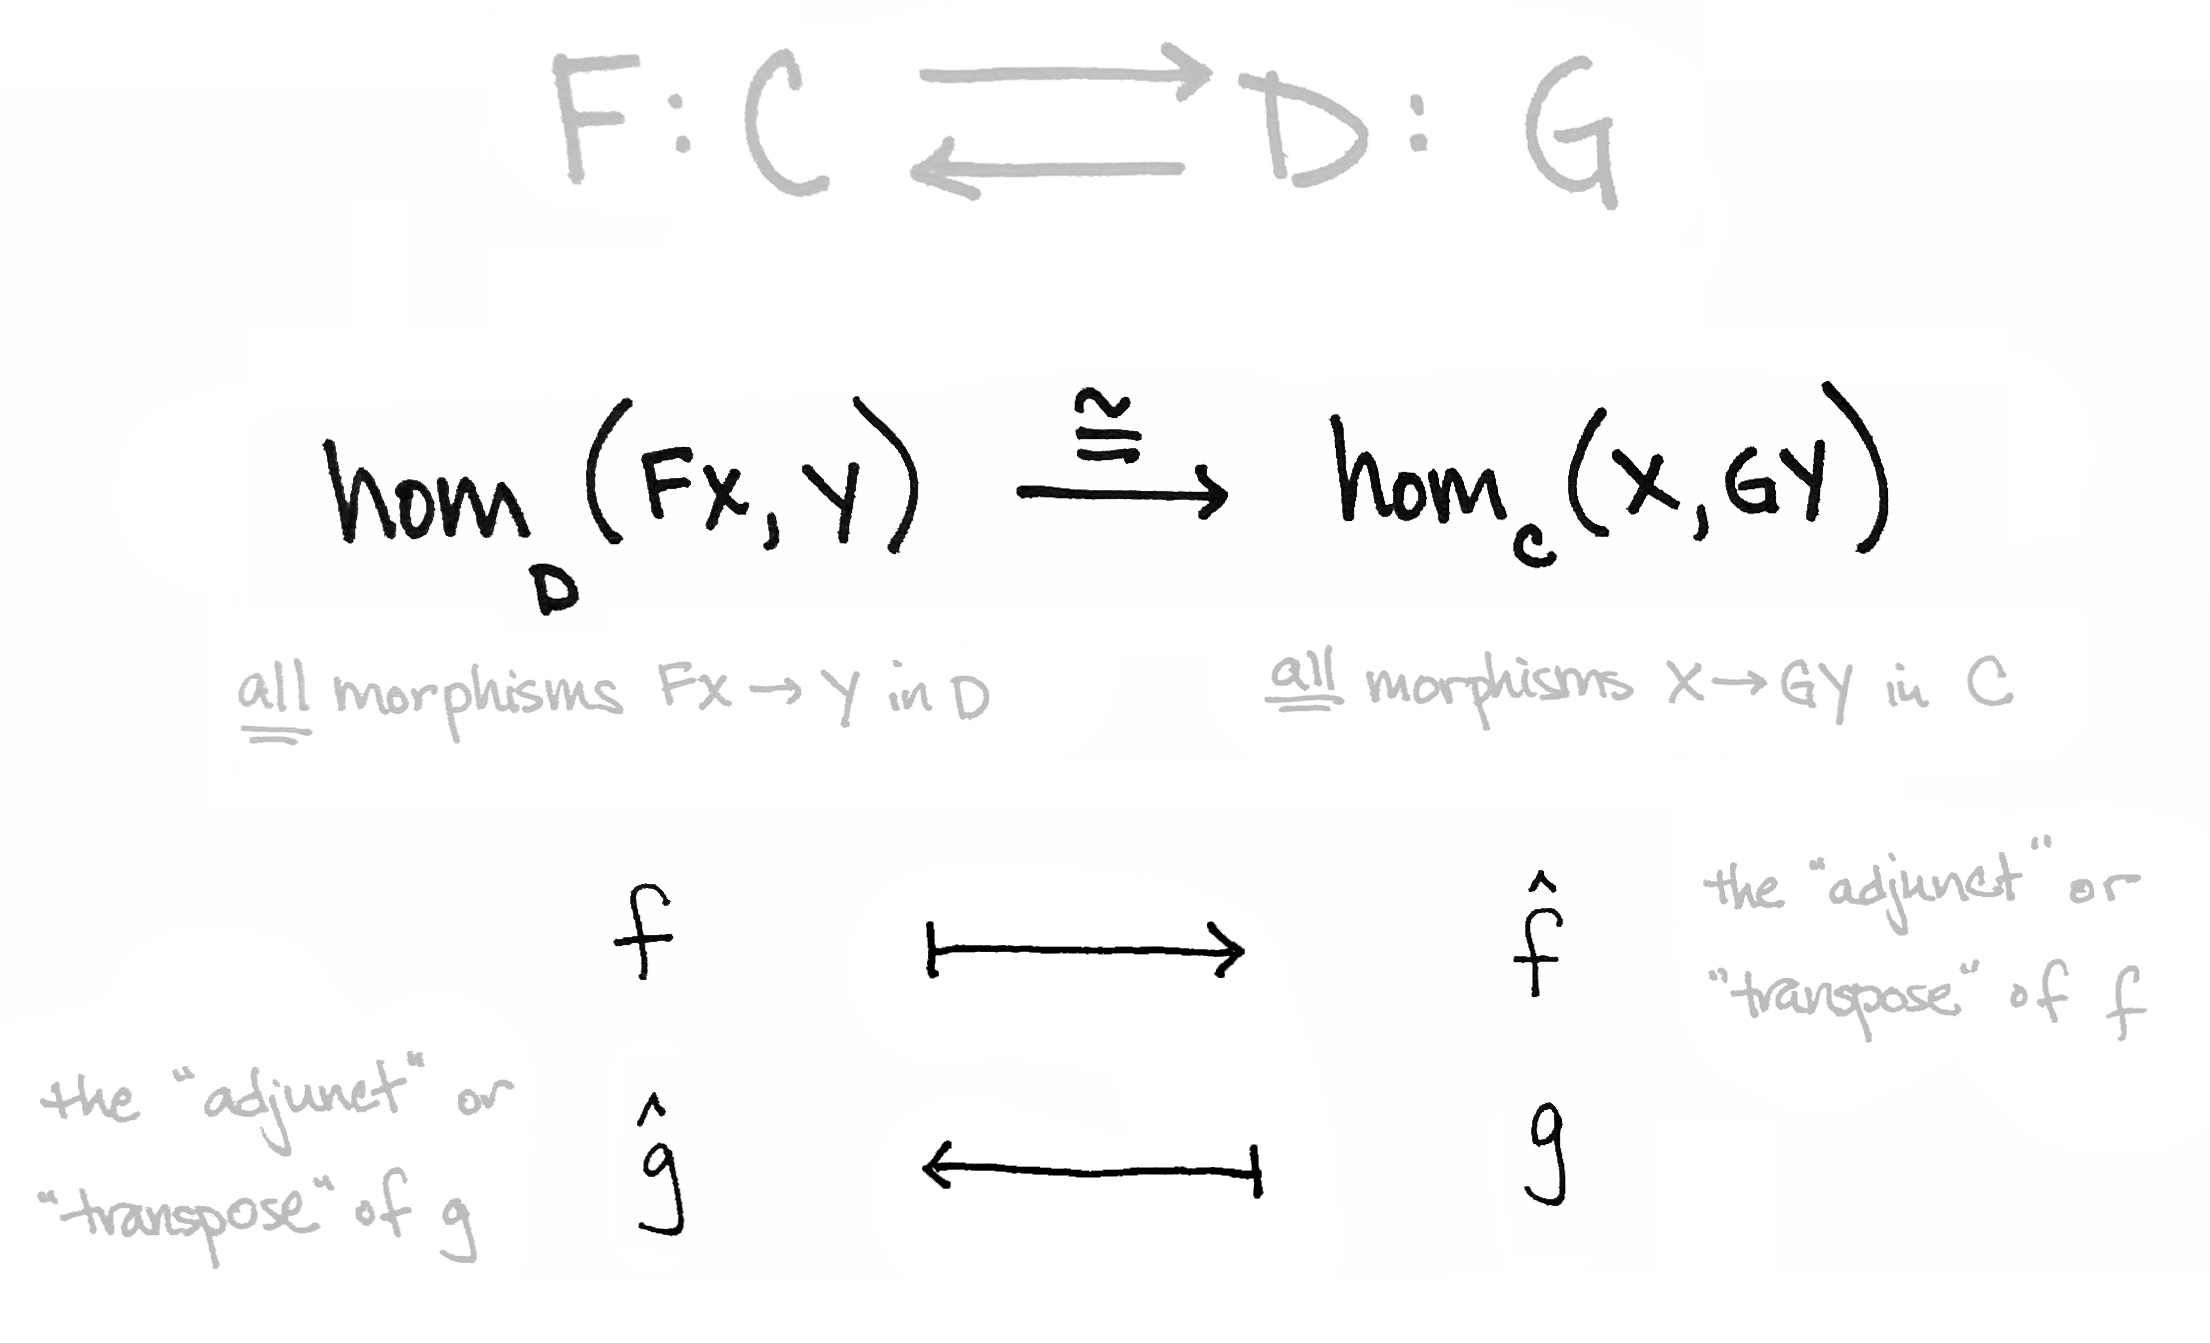 F: C ⇄ D: G
hom_D (FX, Y) ≅→ hom_C (X, GY)
all morphisms FX → Y in D
all morphisms X → GY in C
f ↦ f̂
the "adjunct" or
"transpose" of f
the "adjunct" or
"transpose" of g
ĝ ↤ g